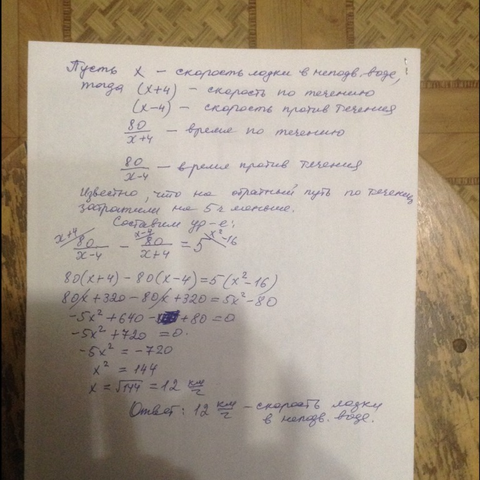 Пусть x – скорость лодки в неподв. воде,
тогда (x+4) – скорость по течению
(x–4) – скорость против течения
80/(x+4) – время по течению
80/(x–4) – время против течения
Известно, что на обратный путь по течению
затратили на 5 ч меньше.
Составим ур-е:
x+4/ 80/(x–4) – x–4/ 80/(x+4) = 5 x²–16/
80(x+4) – 80(x–4) = 5(x²–16)
80x + 320 – 80x + 320 = 5x² – 80
–5x² + 640 + 80 = 0
–5x² + 720 = 0.
–5x² = –720
x² = 144
x = √144 = 12 км/ч
Ответ: 12 км/ч – скорость лодки
в неподв. воде.